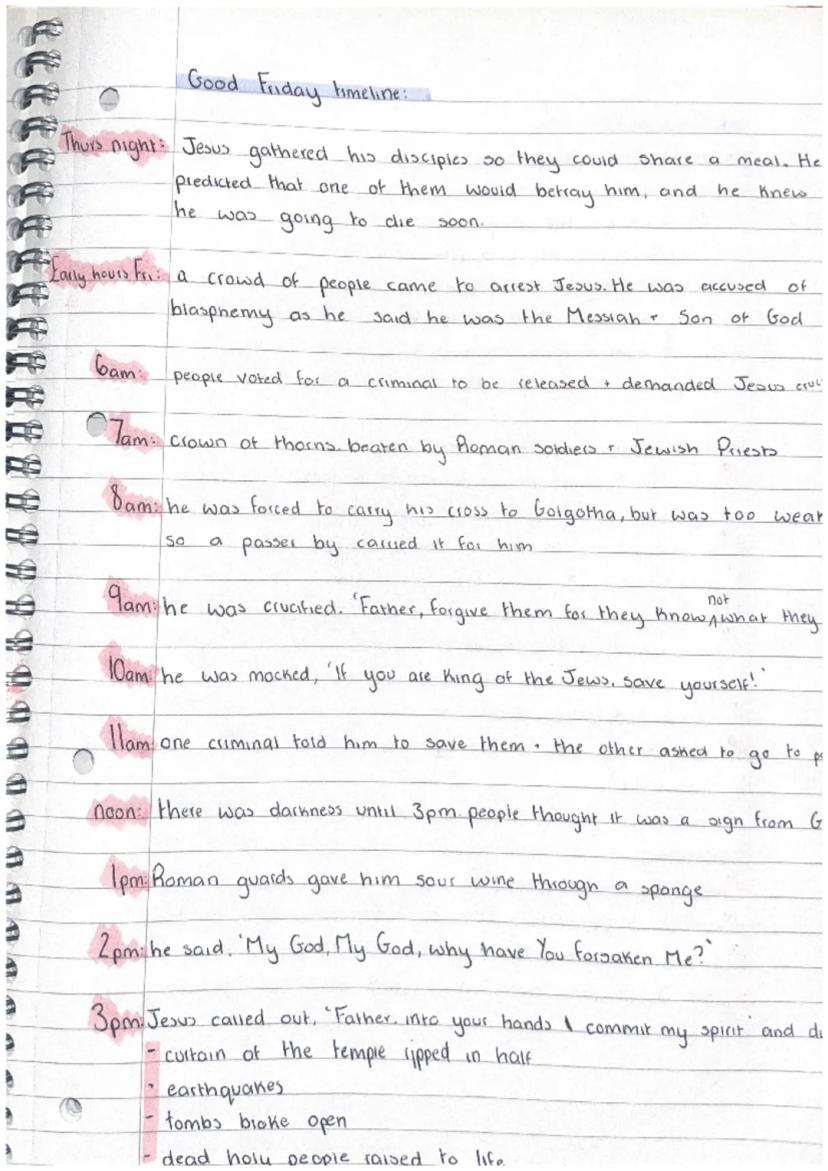 Good Friday timeline:
Thurs night: Jesus gathered his disciples so they could share a meal. He
predicted that one of them would betray him, and he knew
he was going to die soon.
Early hours Fri: a crowd of people came to arrest Jesus. He was accused of
blasphemy as he said he was the Messiah + Son of God
6am: people voted for a criminal to be released + demanded Jesus
7am: crown of thorns. beaten by Roman soldiers + Jewish Priests
8am: he was forced to carry his cross to Golgotha, but was too
so a passer by carried it for him
9am: he was crucified. 'Father, forgive them for they know not what they
10am: he was mocked, 'If you are King of the Jews, save yourself!'
11am: one criminal told him to save them. the other asked to go to
noon: there was darkness until 3pm. people thought it was a sign from
1pm: Roman guards gave him sour wine through a sponge
2pm: he said, 'My God, My God, why have You forsaken Me?'
3pm: Jesus called out, 'Father, into your hands I commit my spirit' and
- curtain of the temple ripped in half
- earthquakes
- tombs broke open
- dead holy people raised to life